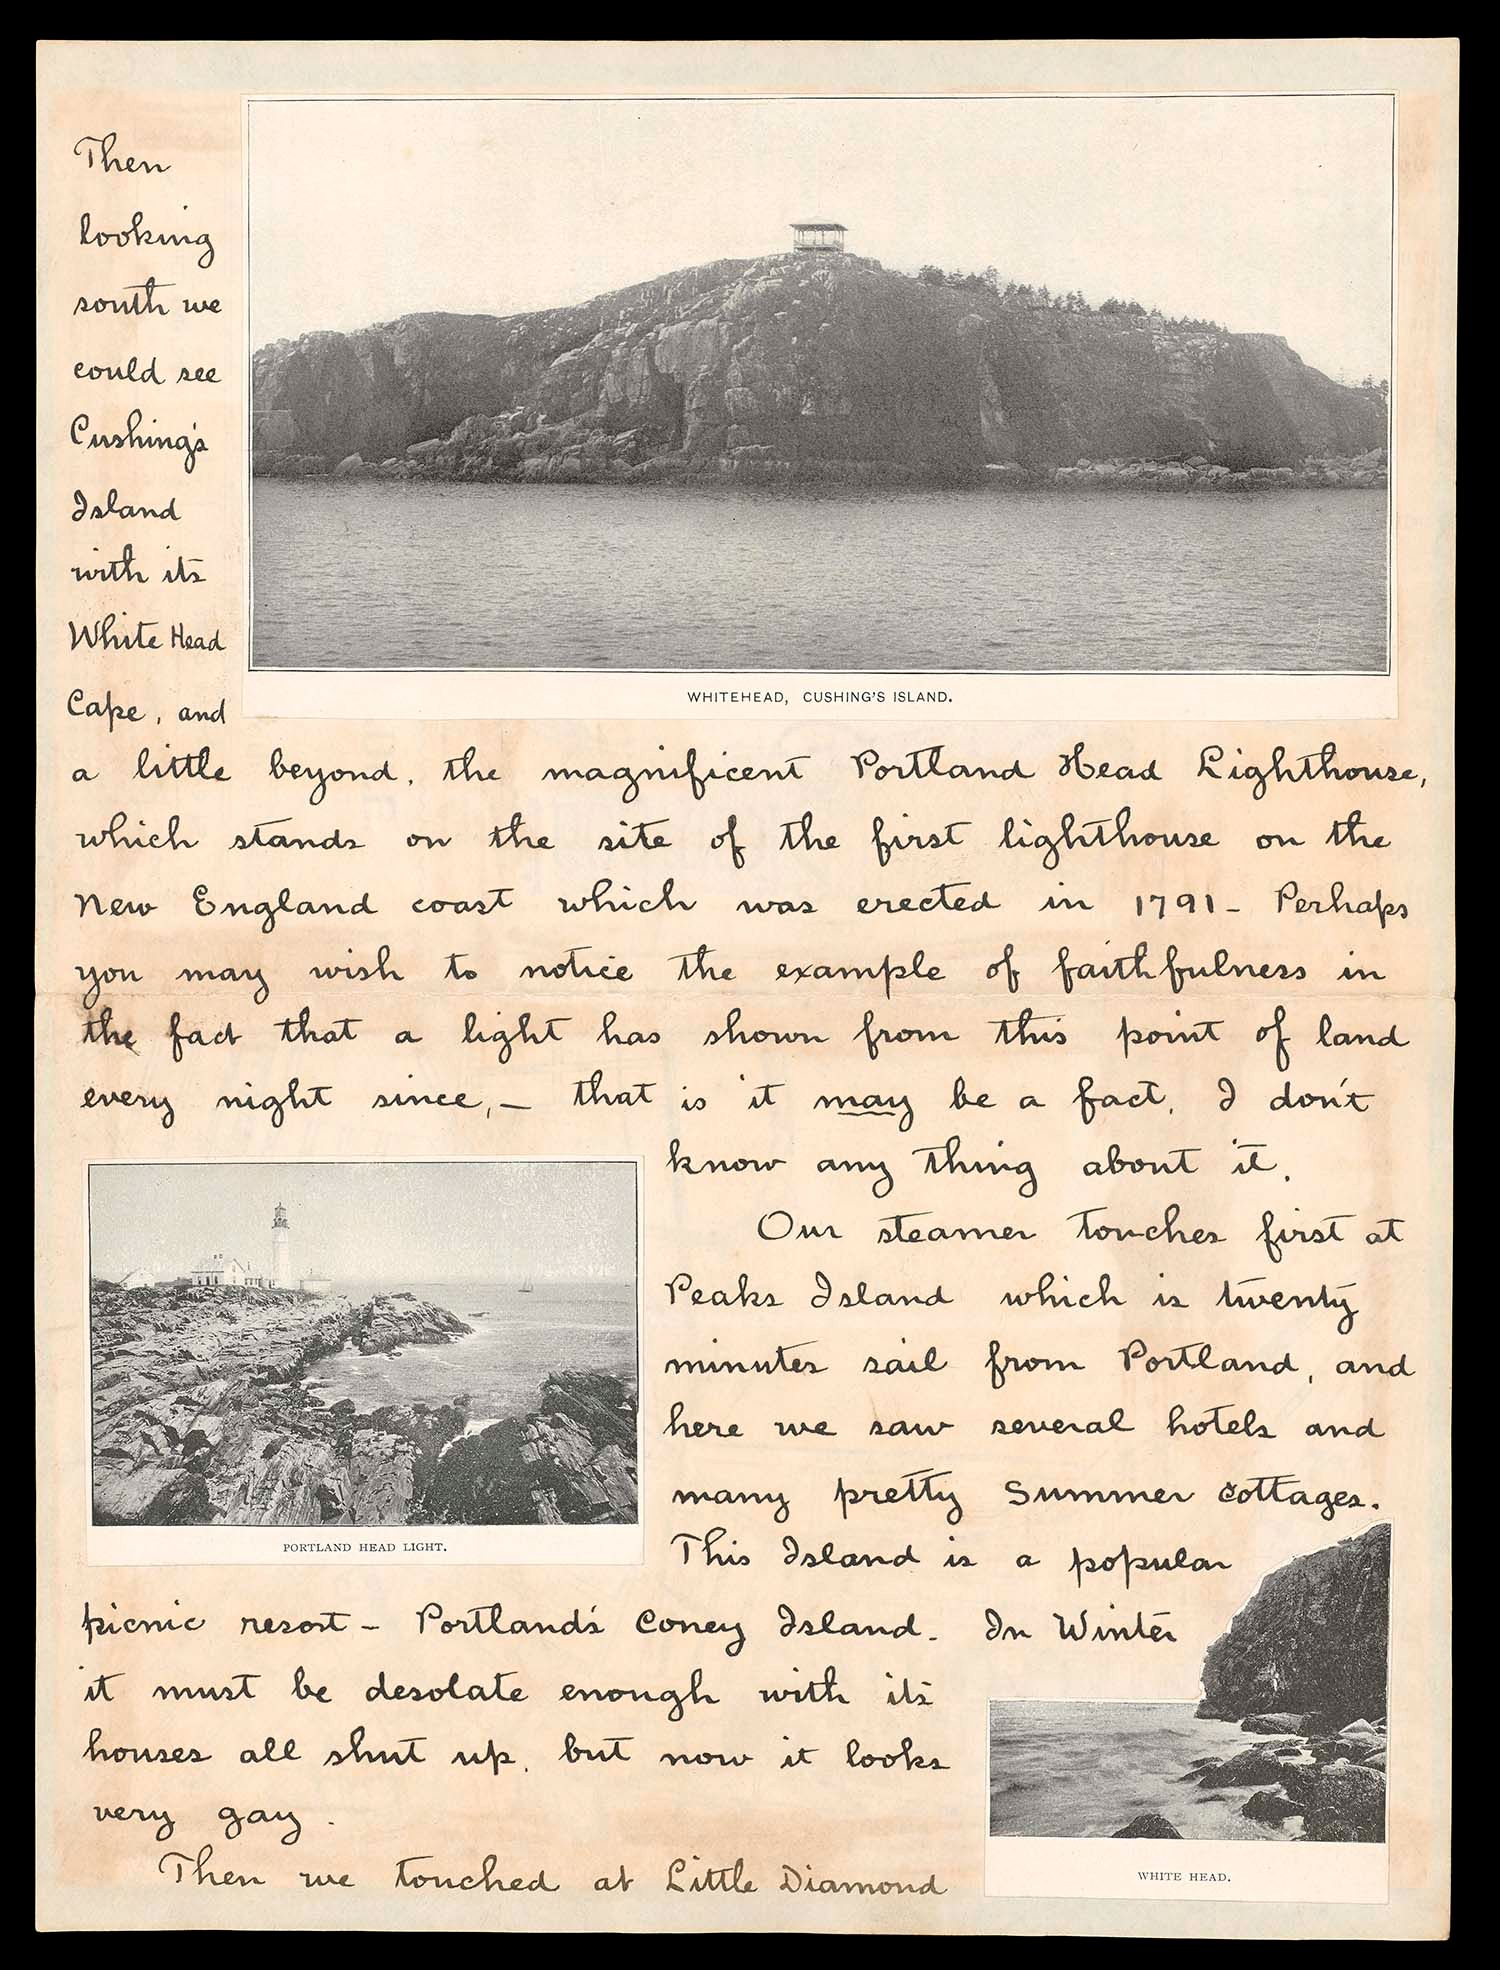 Then
looking
south we
could see
Cushing's
Island
with its
White Head
Cape, and
WHITEHEAD, CUSHING'S ISLAND.
a little beyond, the magnificent Portland Head Lighthouse,
which stands on the site of the first lighthouse on the
New England coast which was erected in 1791 - Perhaps
you may wish to notice the example of faithfulness in
the fact that a light has shown from this point of land
every night since, - that is it may be a fact, I don't
know any thing about it.
PORTLAND HEAD LIGHT.
Our steamer touches first at
Peaks Island which is twenty
minutes sail from Portland, and
here we saw several hotels and
many pretty Summer cottages.
This Island is a popular
picnic resort - Portland's Coney Island. In Winter
it must be desolate enough with its
houses all shut up, but now it looks
very gay.
Then we touched at Little Diamond
WHITE HEAD.